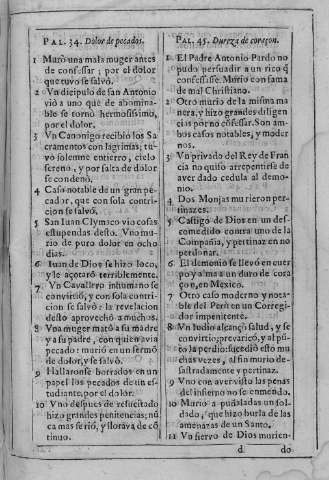 PAL. 34. Dolor de pecados.
1 Murio una mala muger antes
de confessar; y por el dolor
que tuvo se salvò.
2 Vn dicipulo de san Antonio
viò a uno que de abomina-
ble se tornò hermosissimo,
por el dolor.
3 Vn Canonigo recibiò los Sa
cramentos con lagrimas, tu-
vo solemne entierro, cielo
sereno, y por falta de dolor
se condenò.
4 Caso notable de un gran pe-
cador, que con sola contri-
cion se salvò.
5 San Iuan Clymaco viò cosas
estupendas desto. Vno mu-
rio de puro dolor en ocho
dias.
6 Iuan de Dios se hizo loco,
y le açotarõ terriblemente.
7 Vn Cavallero inhumano se
convirtiò, y con sola contri
cion se salvò: la revelacion
desto aprovechò a muchos.
8 Vna muger matò a su madre
y a su padre, con quien avia
pecado: murio en un sermõ
de dolor, y se salvò.
9 Hallaronse borrados en un
papel los pecados de un es-
tudiante, por el dolor.
10 Vno despues de resucitado
hizo grandes penitencias; nũ
ca mas se riò, y llorava de cõ
tinuo.
PAL. 45. Dureza de coraçon.
1 El Padre Antonio Pardo no
pudo persuadir a un rico q̃
confessasse. Murio con fama
de mal Christiano.
2 Otro murio de la misma ma
nera, y hizo grandes diligen
cias por no confessar. Son am-
bos casos notables, y moder
nos.
3 Vn privado del Rey de Fran
cia no quiso arrepentirse de
aver dado cedula al demo-
nio.
4 Dos Monjas murieron per-
tinazes.
5 Castigo de Dios en un des-
comedido contra uno de la
Compañia, y pertinaz en no
perdonar.
6 El demonio se llevò en cuer
po y alma a un duro de cora
çon, en Mexico.
7 Otro caso moderno y nota-
ble del Perù en un Corregi-
dor impenitente.
8 Vn Iudio alcançò salud, y se
convirtio; prevaricò, y al pũ-
to la perdio: sucediò esto mu
chas vezes, al fin murio de-
sastradamente y pertinaz.
9 Vno con aver visto las penas
del infierno no se enmendo.
10 Murio a puñaladas un sol-
dado, que hizo burla de las
amenazas de un Santo.
11 Vn siervo de Dios murien-
d do